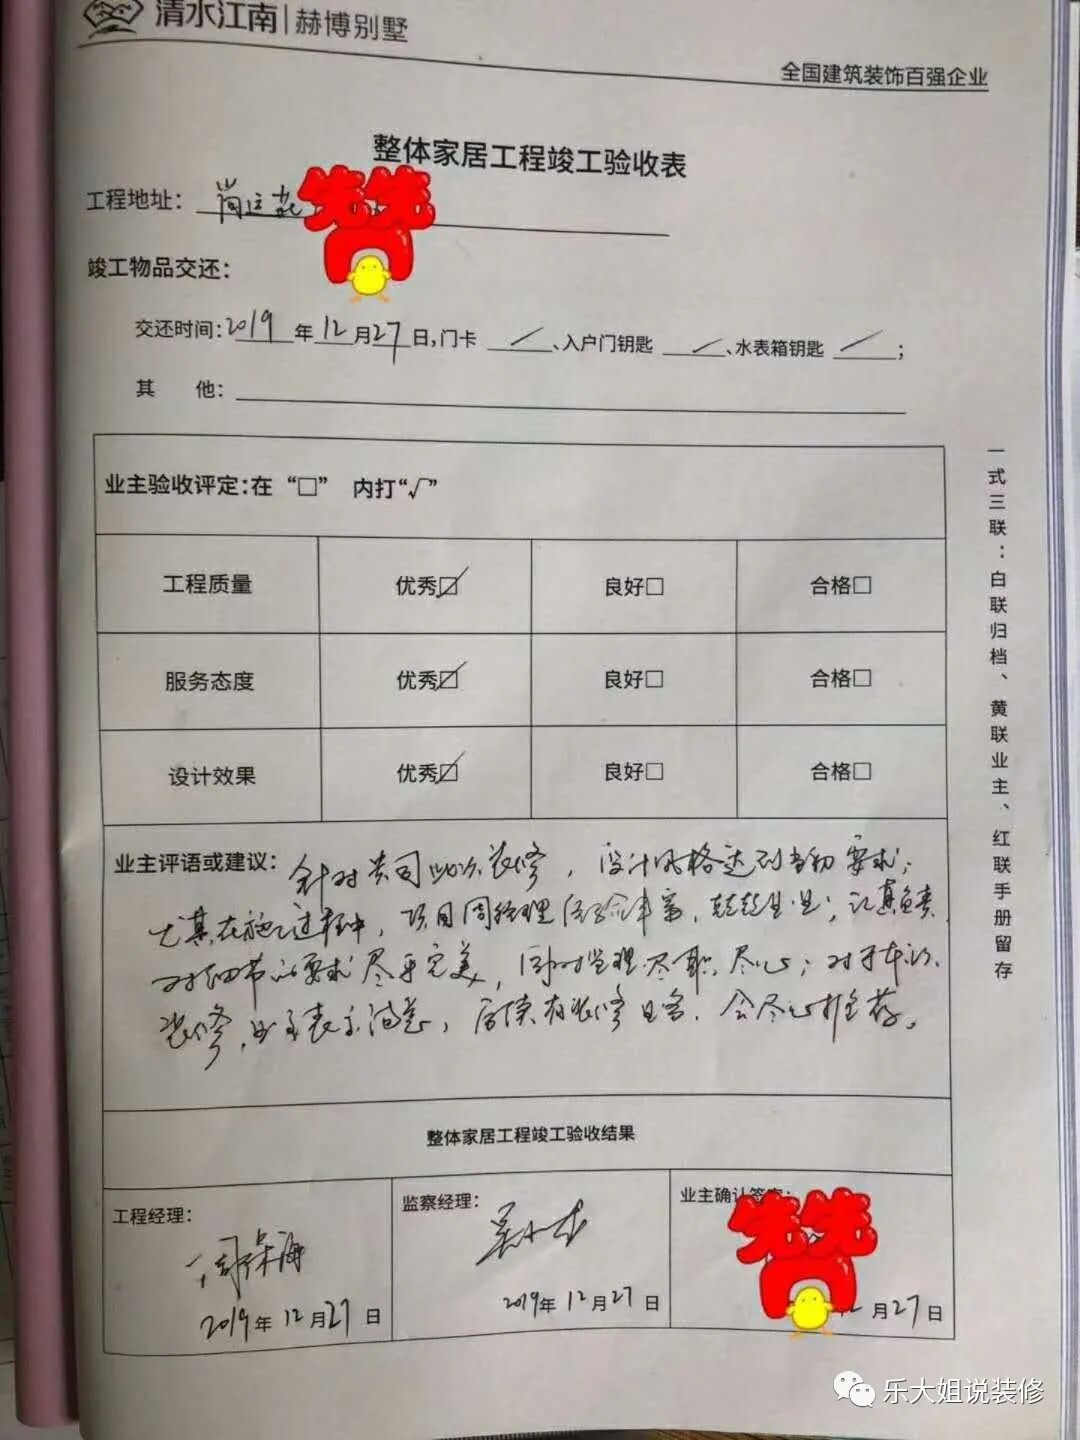 清水江南|赫博别墅
全国建筑装饰百强企业
整体家居工程竣工验收表
工程地址：尚
竣工物品交还：
交还时间：2019年12月27日，门卡 / 、入户门钥匙 / 、水表箱钥匙 / ；
其 他：
业主验收评定：在“□” 内打“√”
工程质量 优秀☑ 良好□ 合格□
服务态度 优秀☑ 良好□ 合格□
设计效果 优秀☑ 良好□ 合格□
业主评语或建议：针对贵司此次装修，设计风格达到当初要求；
尤其在施工过程中，项目周经理经验丰富，兢兢业业；认真负责，
对细节的要求尽乎完美，同时监理尽职尽心；对于本次
装修，业主表示满意，后续有装修业务，会尽心推荐。
整体家居工程竣工验收结果
工程经理：
周
2019年12月27日
监察经理：
2019年12月27日
业主确认签字：
月27日
一式三联：白联归档、黄联业主、红联手册留存
乐大姐说装修